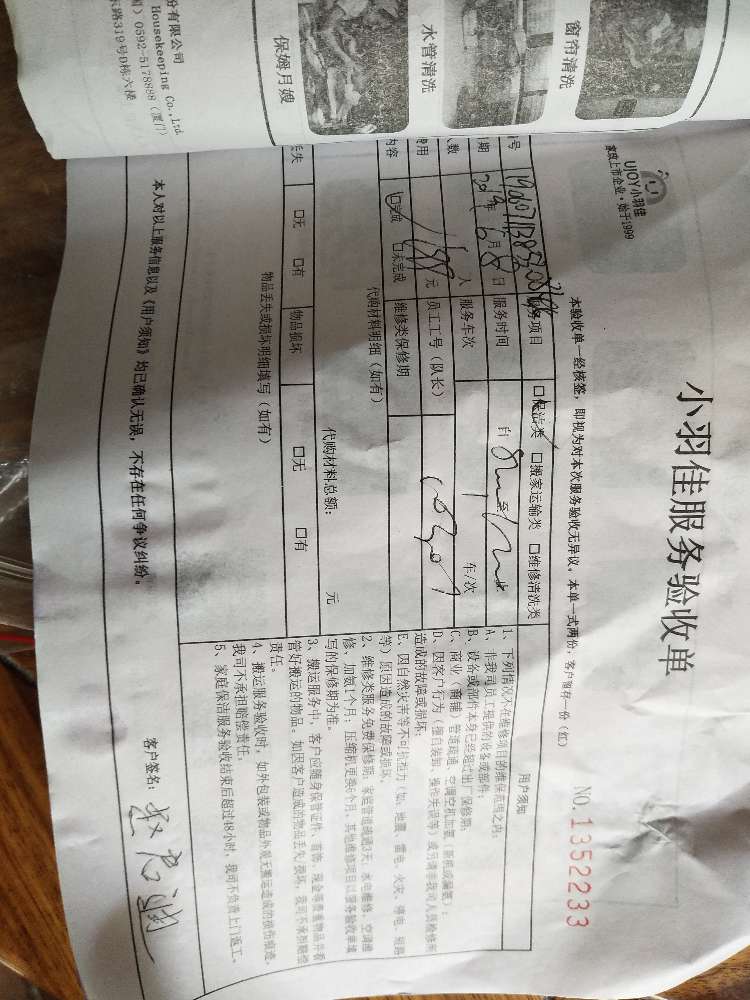 窗帘清洗
水管清洗
保姆月嫂
份有限公司
Housekeeping Co.,Ltd
0592-5178888（厦门）
路319号D栋六楼
UJOY小羽佳
家政上市企业·始于1999
小羽佳服务验收单
本验收单一经核签，即视为对本次服务验收无异议。本单一式两份，客户留存一份（红）
NO. 1352233
号
服务项目 □保洁类 □搬家运输类 □维修清洗类
期 2019年6月8日 服务时间 自 至
人数 人 服务车次 1 车/次
费用 元 员工工号（队长）
内容 □完成 □未完成 维修类保修期
代购材料明细（如有）
代购材料总额： 元
丢失 □无 □有 物品损坏 □无 □有
物品丢失或损坏明细填写（如有）
用户须知
1、下列情况不在维修项目的维保范围之内：
A、非我司员工提供的设备或部件；
B、设备或部件本身已经超过出厂保修期；
C、商业（商铺）管道疏通、空调空机加氨（新机或漏氨）；
D、因客户行为（擅自装卸、操作失误等）或另请非我司人员检修所
造成的故障或损坏；
E、因自然灾害等不可抗拒力（如：地震、雷电、火灾、停电、短路
等）原因造成的故障或损坏。
2、维修类服务免费保修期：家庭管道疏通3天，水电维修、空调维
修、加氨1个月；压缩机更换6个月、其他维修项目以服务验收单填
写的保修期为准。
3、搬运服务中，客户应随身保管证件、首饰、现金等贵重物品并看
管好搬运的物品。如因客户造成的物品丢失/损坏，我司不承担赔偿
责任。
4、搬运服务验收时，如外包装或物品外观无搬运造成的损伤痕迹，
我司不承担赔偿责任。
5、家庭保洁服务验收结束后超过48小时，我司不负责上门返工。
本人对以上服务信息以及《用户须知》均已确认无误，不存在任何争议纠纷。
客户签名：